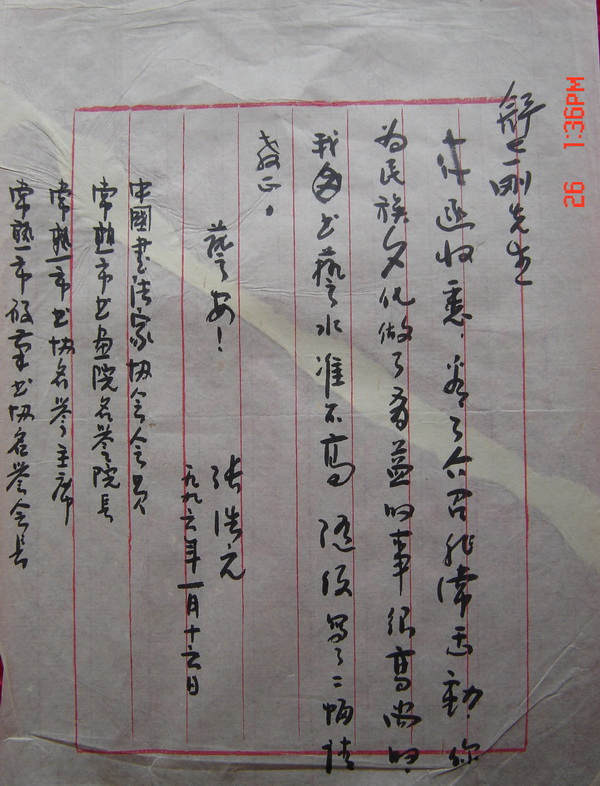 舒士刚先生
来函收悉，看了介绍非常感动，你
为民族文化做了有益的事很高尚的，
我的书艺水准不高 随便写了二幅请
教正。
艺安！
张浩元
一九九六年一月十六日
中國书法家协会会员
常熟市书画院名誉院长
常熟市书协名誉主席
常熟市硬笔书协名誉会长
26 1:36PM